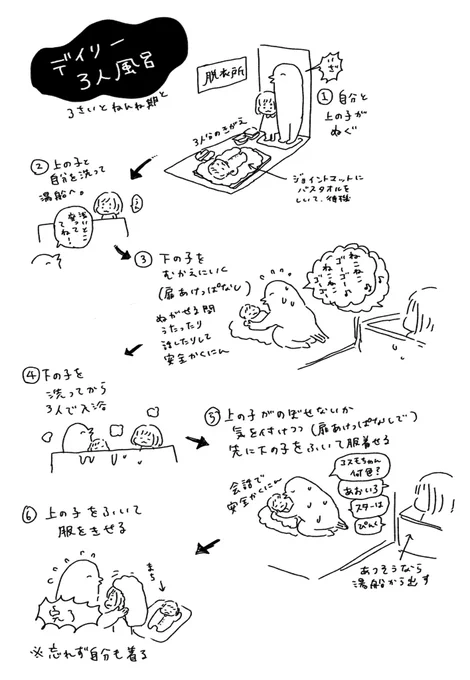 デイリー
3人風呂
3さいとねんね期と
脱衣所
いざ
① 自分と
上の子が
ぬぐ
3人分のきがえ
ジョイントマットに
バスタオルを
しいて、待機
② 上の子と
自分を洗って
湯船へ。
③ 下の子を
むかえにいく
(扉あけっぱなし)
ぬがせる間
うたったり
話したりして
安全かくにん
ねこねこ
ゴーゴー♪
ねこねこ
ゴーゴー♪
④ 下の子を
洗ってから
3人で入浴
⑤ 上の子がのぼせないか
気を付けつつ(扉あけっぱなしで)
先に下の子をふいて服着せる
会話で
安全かくにん
コスモちゃん
何色?
あおいろ
スターは
ぴんく
あつそうなら
湯船から出す
⑥ 上の子をふいて
服をきせる
まち
完了
※忘れず自分も着る